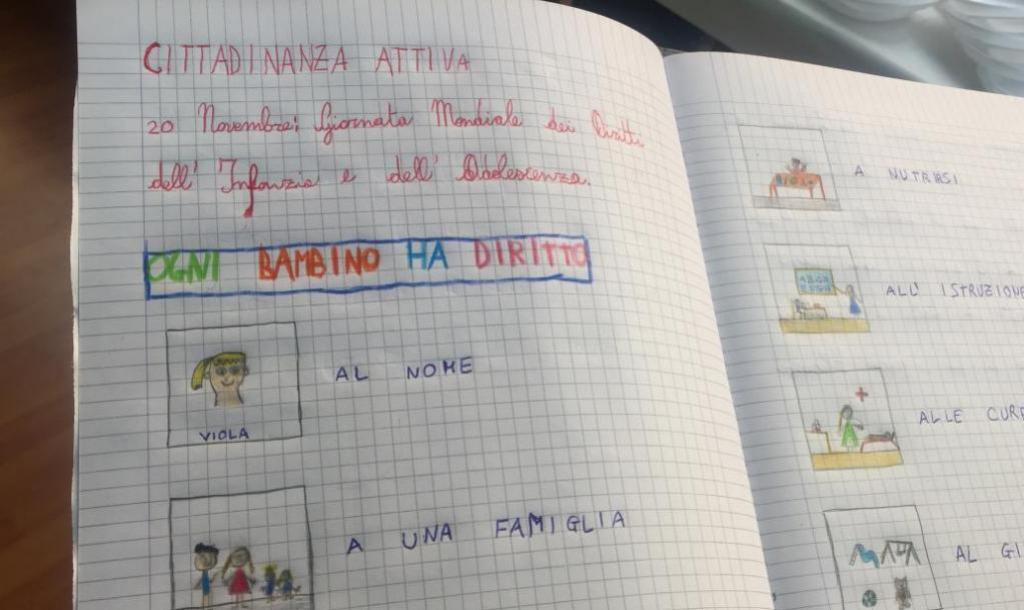 CITTADINANZA ATTIVA
20 Novembre: Giornata Mondiale dei Diritti
dell' Infanzia e dell' Adolescenza.
OGNI BAMBINO HA DIRITTO
AL NOME
VIOLA
A UNA FAMIGLIA
A NUTRIRSI
ALL' ISTRUZIONE
ALLE CURE
AL GI